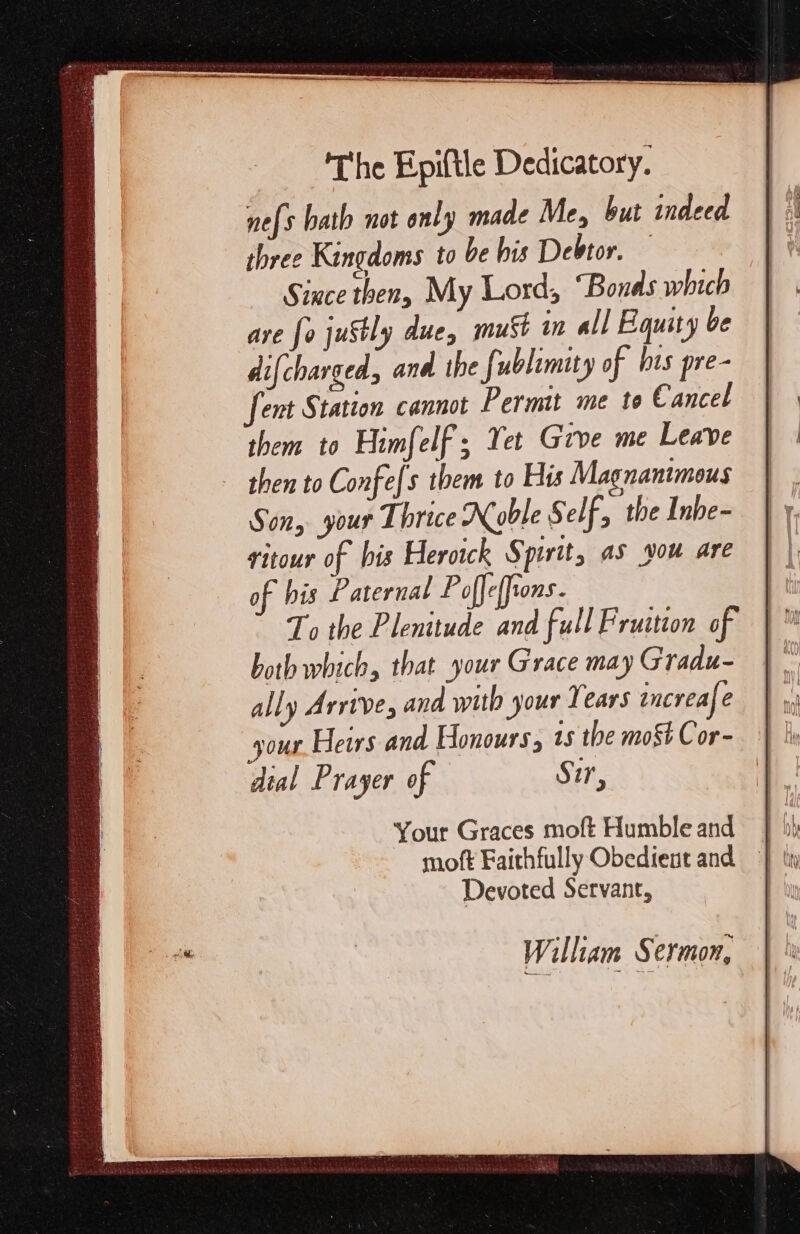 The Epiſtle Dedicatory.
neſs hath not only made Me, but indeed
three Kingdoms to be his Debtor.
Since then, My Lord, Bonds which
are ſo juſtly due, muſt in all Equity be
diſcharged, and the ſublimity of his pre-
ſent Station cannot Permit me to Cancel
them to Himſelf; Yet Give me Leave
then to Confeſs them to His Magnanimous
Son, your Thrice Noble Self, the Inhe-
ritour of his Heroick Spirit, as you are
of his Paternal Poſſeſſions.
To the Plenitude and full Fruition of
both which, that your Grace may Gradu-
ally Arrive, and with your Years increaſe
your Heirs and Honours, is the moſt Cor-
dial Prayer of Sir,
Your Graces moſt Humble and
moſt Faithfully Obedient and
Devoted Servant,
William Sermon,